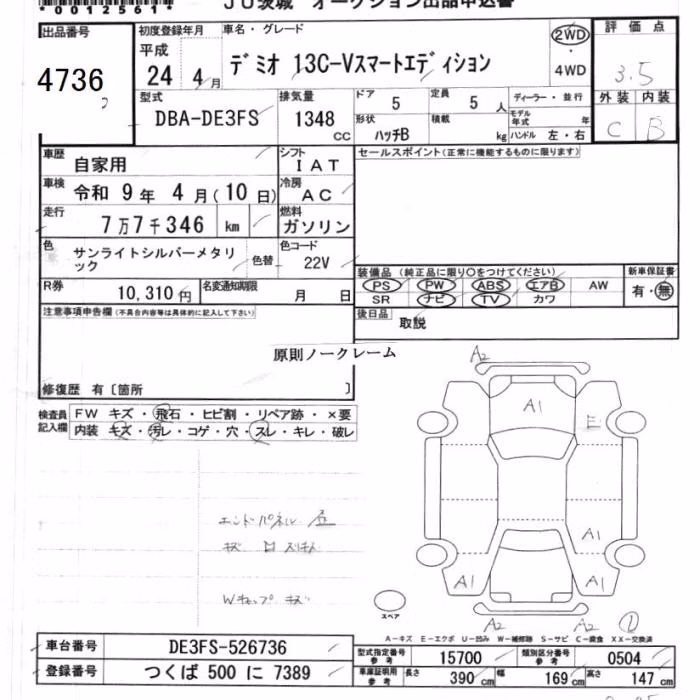 *0012561*
JU茨城 オークション出品申込書
出品番号 4736
初度登録年月 平成 24 4月
車名・グレード デミオ 13C-Vスマートエディション
2WD・4WD
評価点 3.5
外装 内装
C B
型式 DBA-DE3FS
排気量 1348 CC
ドア 5 定員 5 人
形状 ハッチB 積載 kg
ディーラー・並行
モデル年式 年
ハンドル 左・右
車歴 自家用
シフト IAT
セールスポイント(正常に機能するものに限ります)
車検 令和 9年 4月(10日)
冷房 AC
走行 7万7千346 km
燃料 ガソリン
色 サンライトシルバーメタリック 色替
色コード 22V
R券 10,310円
名変通知期限 月 日
装備品 (純正品に限り○をつけてください) 新車保証書
PS PW ABS エアB AW 有・無
SR ナビ TV カワ
後日品 取説
注意事項申告欄(不具合内容等は具体的に記入して下さい)
原則ノークレーム
修復歴 有〔箇所 〕
検査員記入欄
FW キズ・飛石・ヒビ割・リペア跡・×要
内装 キズ・汚レ・コゲ・穴・スレ・キレ・破レ
A2
A1
E
A1
A1 A1
A2 A2
エンドパネル
Wキャップ キズ
スペア
A-キズ E-エクボ U-凹み W-補修跡 S-サビ C-腐食 XX-交換済
車台番号 DE3FS-526736
登録番号 つくば 500 に 7389
型式指定番号 参考 15700 類別区分番号 参考 0504
車庫証明用 参考 長さ 390 cm 幅 169 cm 高さ 147 cm